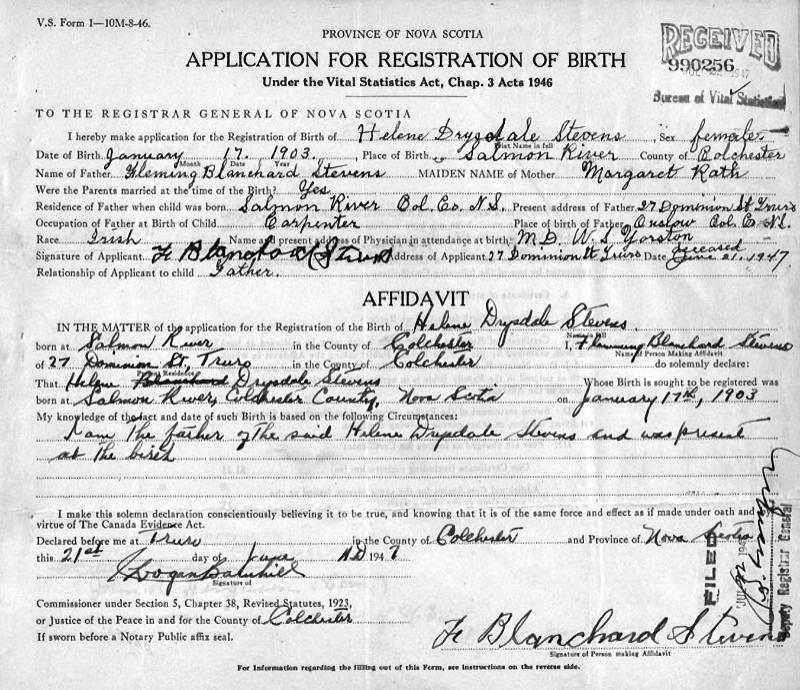 V.S. Form 1—10M-8-46.
PROVINCE OF NOVA SCOTIA
APPLICATION FOR REGISTRATION OF BIRTH
Under the Vital Statistics Act, Chap. 3 Acts 1946
RECEIVED
990256
1947
Bureau of Vital Statistics
TO THE REGISTRAR GENERAL OF NOVA SCOTIA
I hereby make application for the Registration of Birth of Helene Drysdale Stevens, Sex female
Print Name in full
Date of Birth January 17. 1903. Place of Birth Salmon River County of Colchester
Month Date Year
Name of Father Fleming Blanchard Stevens MAIDEN NAME of Mother Margaret Rath
Were the Parents married at the time of the Birth? Yes
Residence of Father when child was born Salmon River Col. Co. N.S. Present address of Father 27 Dominion St Truro
Occupation of Father at Birth of Child Carpenter Place of birth of Father Onslow Col. Co N.S.
Race Irish Name and present address of Physician in attendance at birth M.D. W.S. Yorston
deceased
Signature of Applicant F. Blanchard Stevens Address of Applicant 27 Dominion St Truro Date June 21, 1947
Relationship of Applicant to child Father.
AFFIDAVIT
IN THE MATTER of the application for the Registration of the Birth of Helene Drysdale Stevens.
born at Salmon River in the County of Colchester I, Flemming Blanchard Stevens
Name of Person Making Affidavit
of 27 Dominion St, Truro in the County of Colchester do solemnly declare:
Residence
That Helene Blanchard Drysdale Stevens Whose Birth is sought to be registered was
born at Salmon River, Colchester County, Nova Scotia on January 17th, 1903
My knowledge of the fact and date of such Birth is based on the following Circumstances:
I am the father of the said Helene Drysdale Stevens and was present
at the birth
I make this solemn declaration conscientiously believing it to be true, and knowing that it is of the same force and effect as if made under oath and by
virtue of The Canada Evidence Act.
Declared before me at Truro in the County of Colchester and Province of Nova Scotia
this 21st day of June AD 1947
Signature of
Commissioner under Section 5, Chapter 38, Revised Statutes, 1923,
or Justice of the Peace in and for the County of Colchester
If sworn before a Notary Public affix seal.
F. Blanchard Stevens
Signature of Person making Affidavit
FILED
Deputy Registrar General
For Information regarding the filling out of this Form, see instructions on the reverse side.